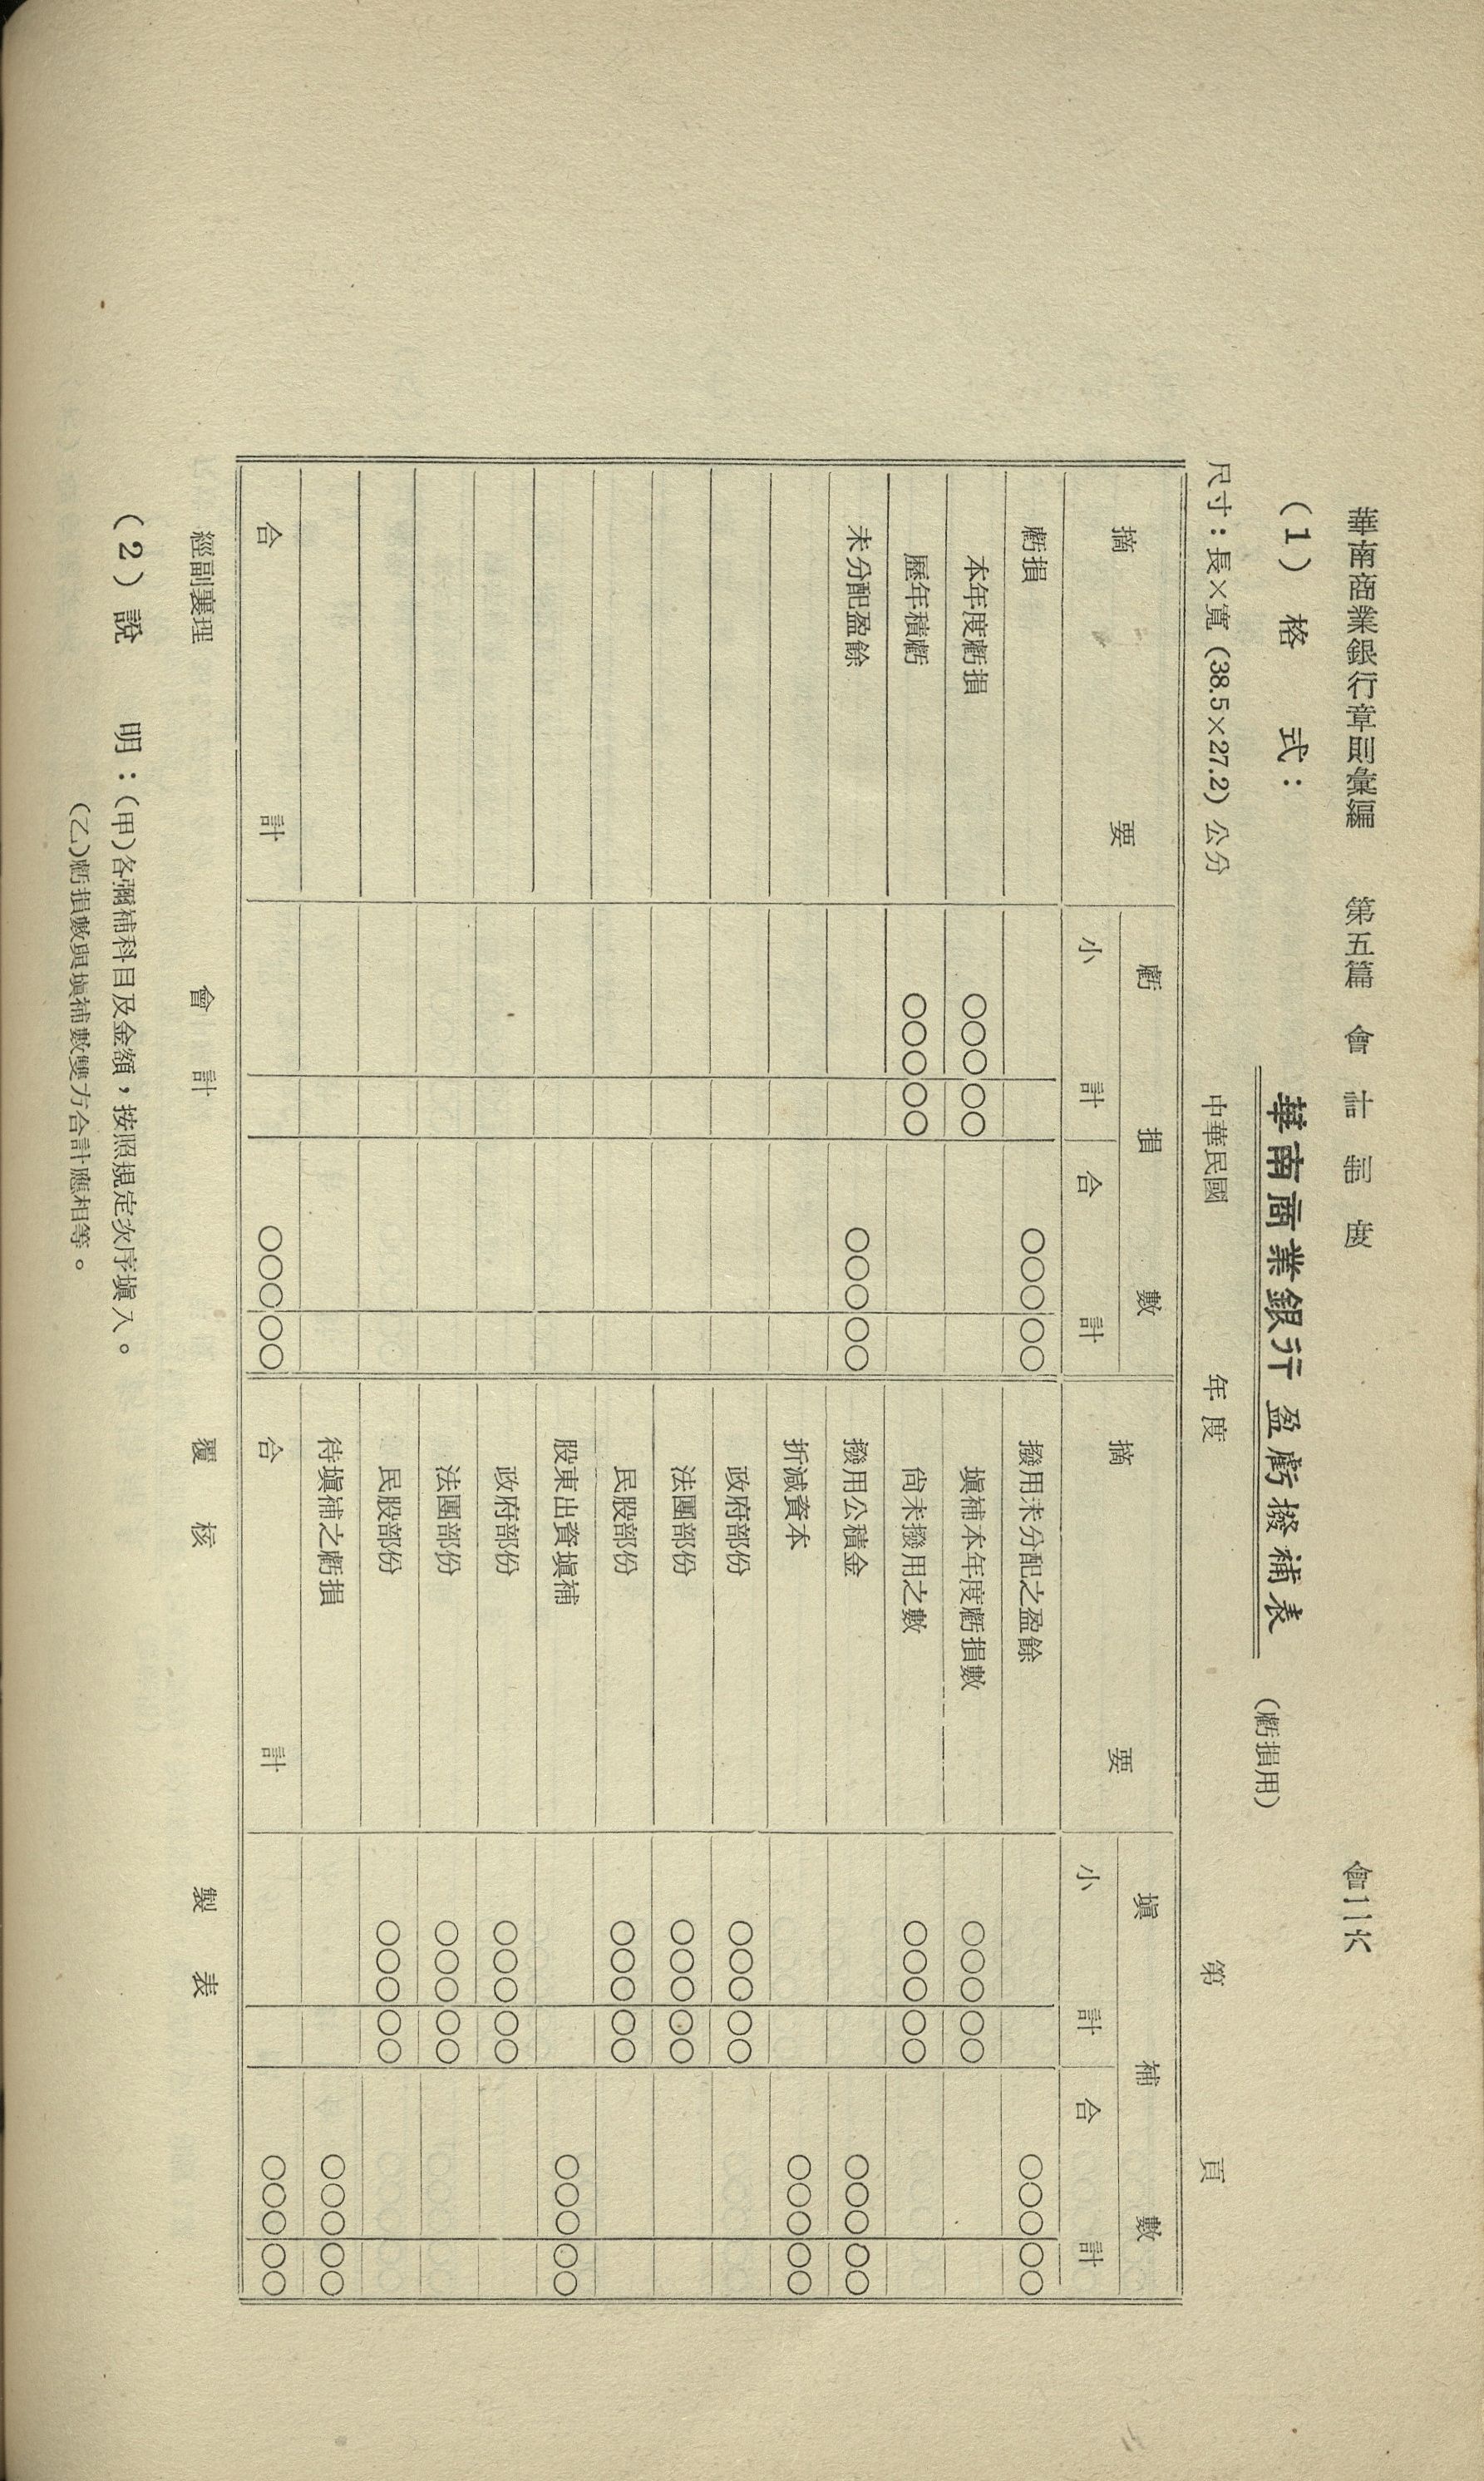 華南商業銀行章則彙編 第五篇 會計制度 會11K
(1) 格式：
華南商業銀行 盈虧撥補表 (虧損用)
尺寸：長×寬 (38.5×27.2) 公分 中華民國 年度 第 頁
摘要 虧損數 摘要 塡補數
小計 合計 小計 合計
虧損 ○○○○○ 撥用未分配之盈餘 ○○○○○
本年度虧損 ○○○○○ 塡補本年度虧損數 ○○○○○
歷年積虧 ○○○○○ 尙未撥用之數 ○○○○○
未分配盈餘 ○○○○○ 撥用公積金 ○○○○○
折減資本 ○○○○○
政府部份 ○○○○○
法團部份 ○○○○○
民股部份 ○○○○○
股東出資塡補 ○○○○○
政府部份 ○○○○○
法團部份 ○○○○○
民股部份 ○○○○○
待塡補之虧損 ○○○○○
合計 ○○○○○ 合計 ○○○○○
經副襄理 會計 覆核 製表
(2) 說明：(甲)各彌補科目及金額，按照規定次序塡入。
(乙)虧損數與塡補數雙方合計應相等。